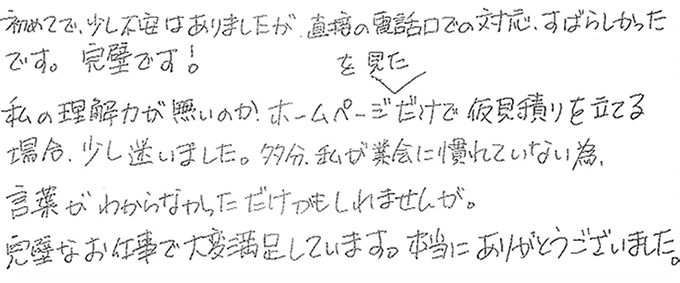 初めてで、少し不安はありましたが、直接の電話口での対応、すばらしかった
です。完璧です！
私の理解力が悪いのか、ホームページを見ただけで仮見積りを立てる
場合、少し迷いました。多分、私が業会に慣れていない為、
言葉がわからなかっただけかもしれませんが。
完璧なお仕事で大変満足しています。本当にありがとうございました。